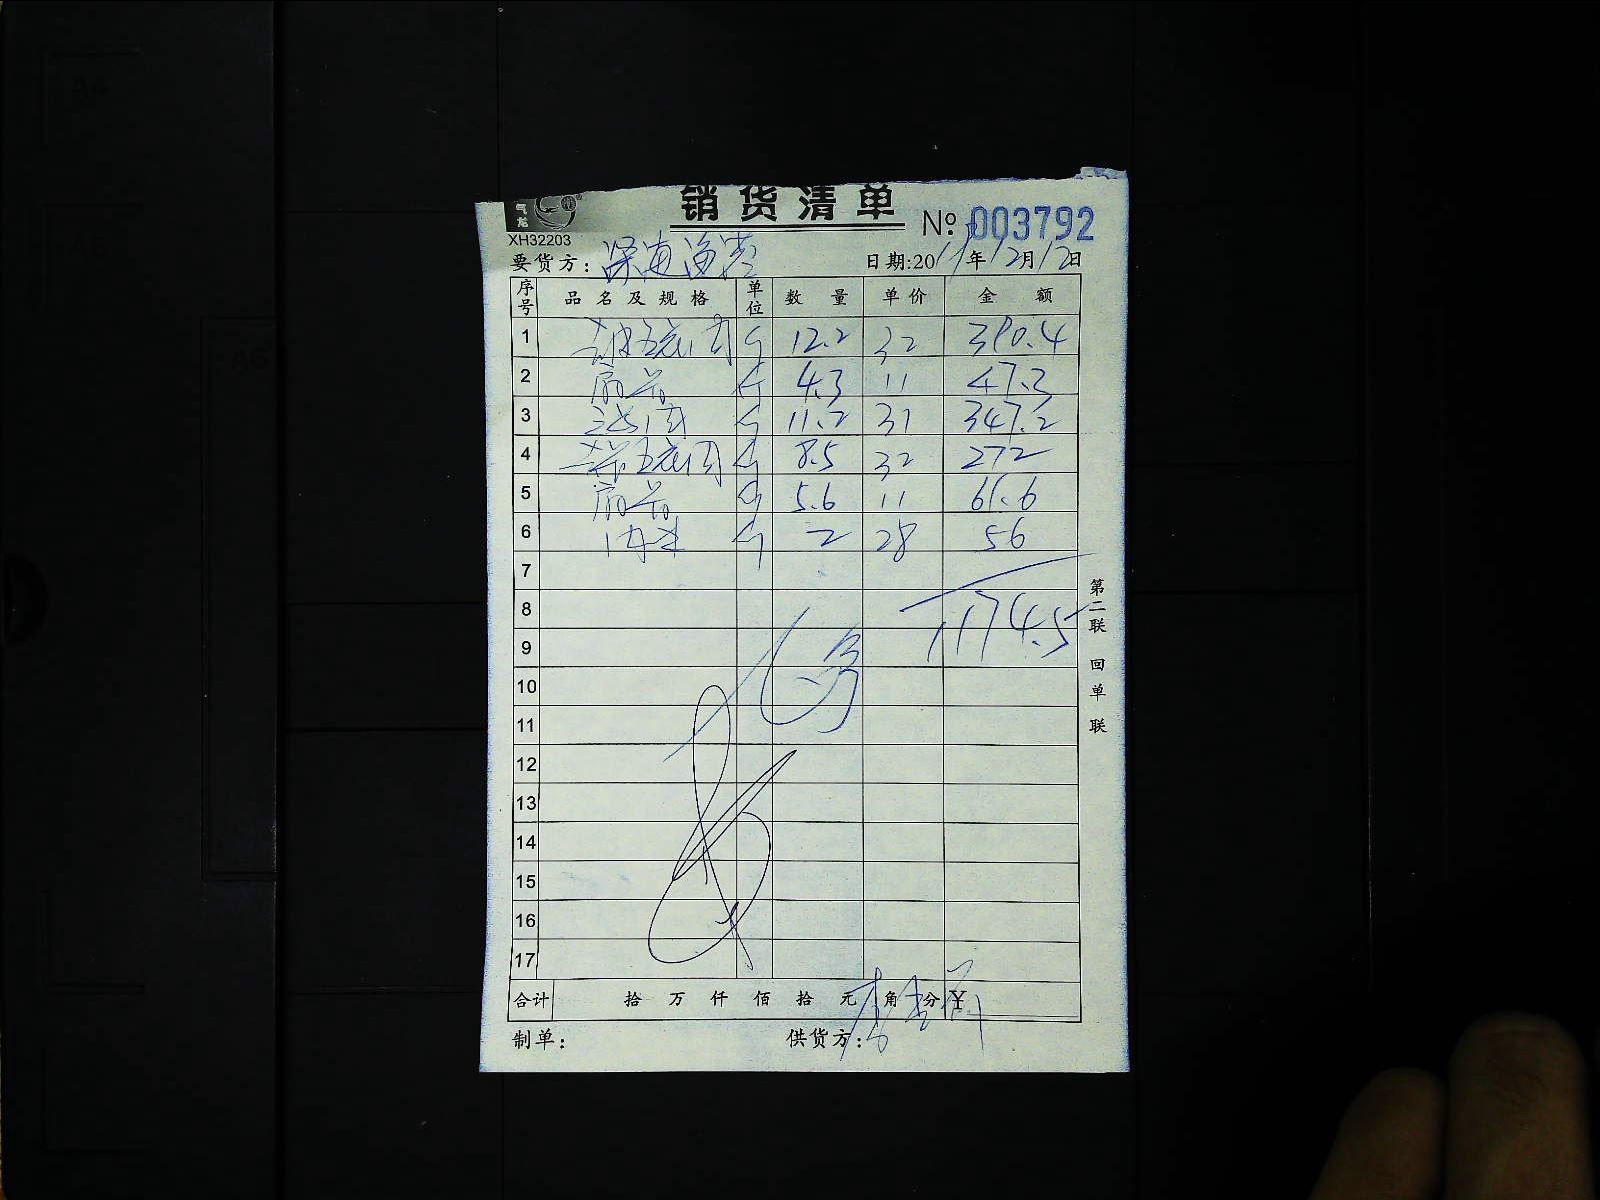 销货清单
气龙
№: 003792
XH32203
要货方: 深海渔湾
日期:2019年12月12日
序号 品名及规格 单位 数量 单价 金额
1 五花肉 斤 12.2 32 390.4
2 扇骨 斤 4.3 11 47.3
3 肉 斤 11.2 31 347.2
4 五花肉 斤 8.5 32 272
5 扇骨 斤 5.6 11 61.6
6 肉 斤 2 28 56
7
8 1174.5
9
10
11
12
13
14
15
16
17
合计 拾 万 仟 佰 拾 元 角 分 ¥
制单: 供货方:
第二联 回单联